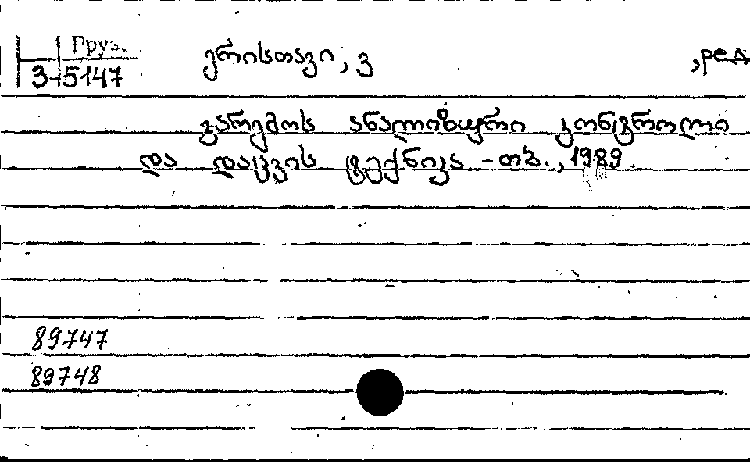 Груз.
3-5147
ერისთავი, ვ , ред
გარემოს ანალიზური კონტროლი
და დაცვის ტექნიკა - თბ., 1989
89747
89748